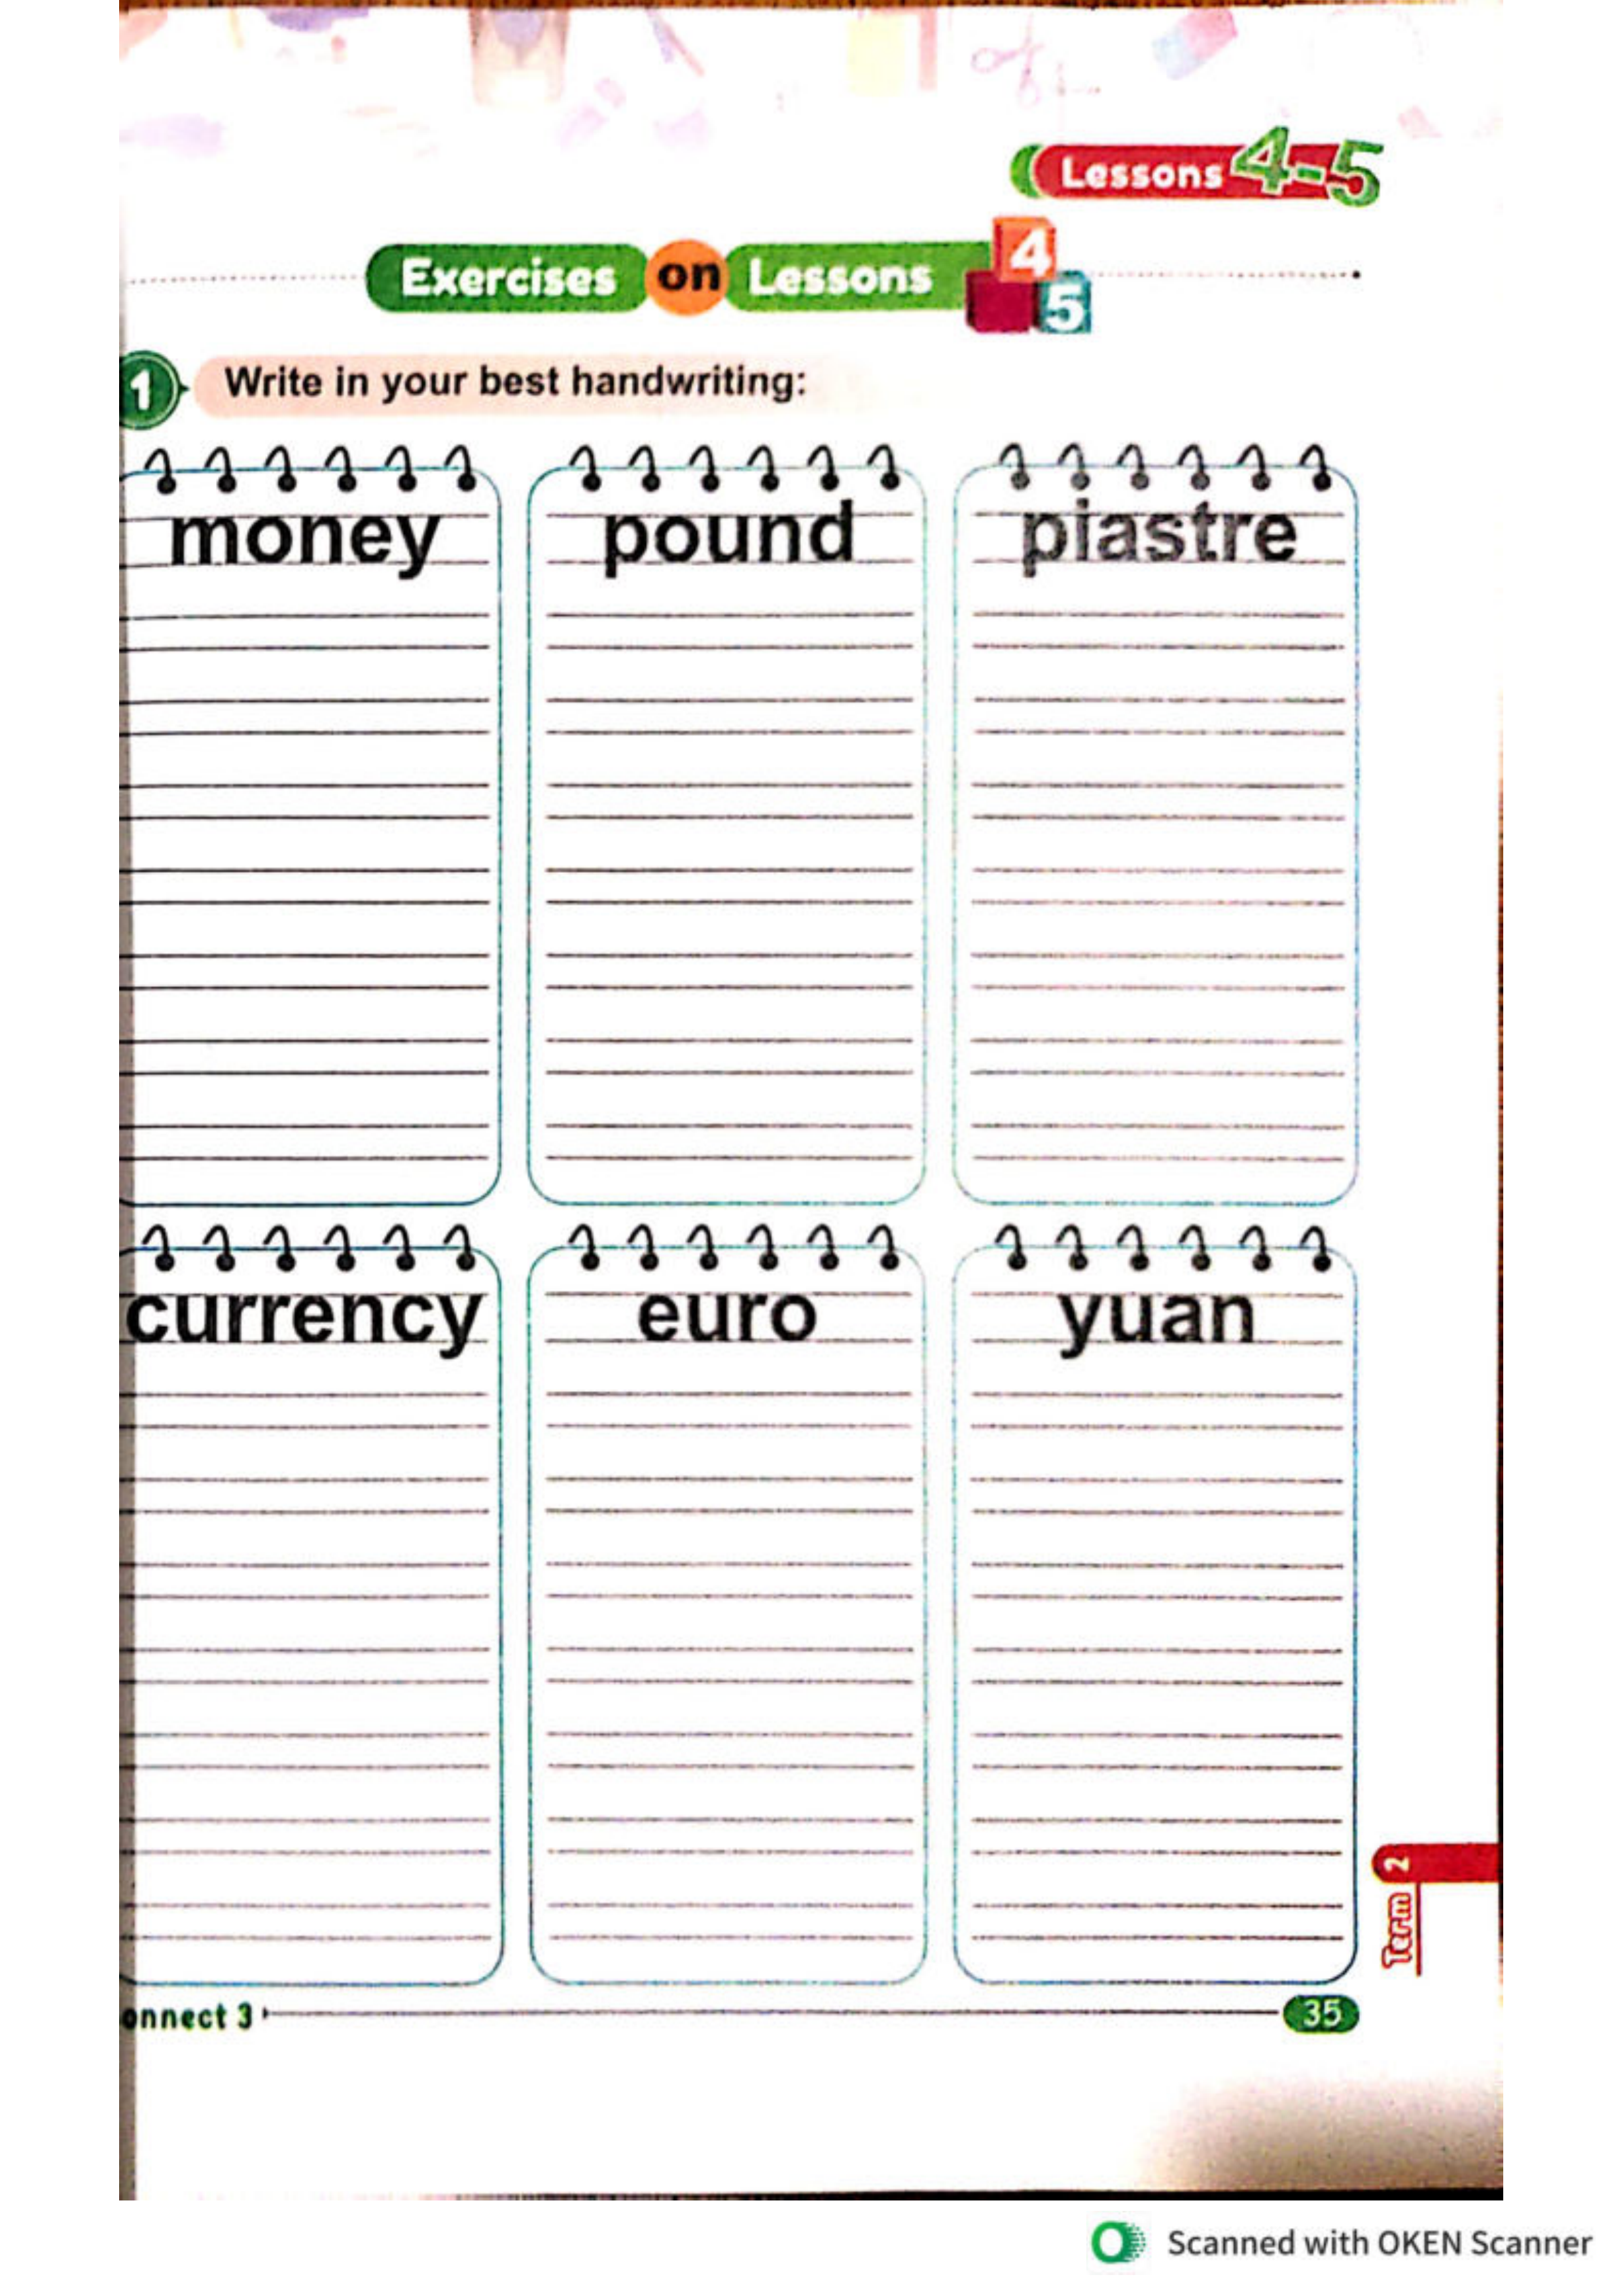 Lessons 4-5
Exercises on Lessons 4 5
1 Write in your best handwriting:
money pound piastre
currency euro yuan
Term 2
onnect 3 35
Scanned with OKEN Scanner